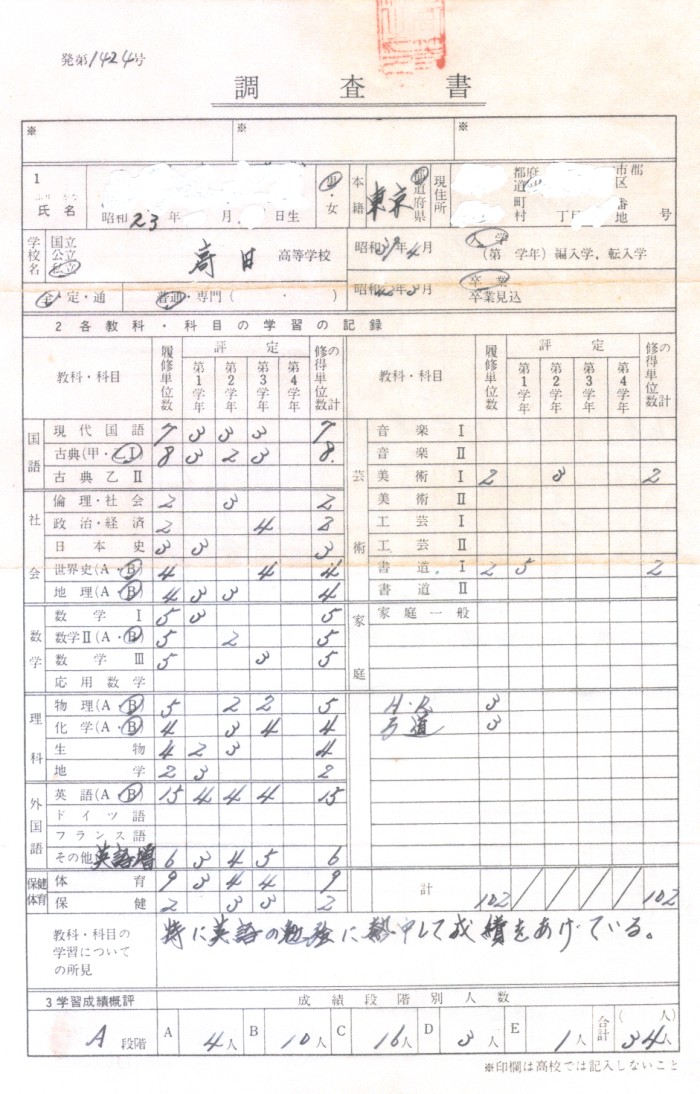 発第1424号
調査書
※ ※ ※
1
氏名
昭和23年 月 日生
男・女
本籍 東京 都道府県
現住所 都道府 市郡区 町村 丁目 番地 号
学校名 国立 公立 私立 高等学校
昭和39年4月 入学 (第 学年)編入学,転入学
全・定・通 普通・専門( ・ )
昭和 年3月 卒業 卒業見込
2 各教科・科目の学習の記録
教科・科目 履修単位数 評定 第1学年 第2学年 第3学年 第4学年 修得単位数の計
教科・科目 履修単位数 評定 第1学年 第2学年 第3学年 第4学年 修得単位数の計
国語 現代国語 7 3 3 3 7
古典(甲・乙Ⅰ) 8 3 2 3 8.
古典乙Ⅱ
社会 倫理・社会 2 3 2
政治・経済 2 4 2
日本史 3 3 3
世界史(A・B) 4 4 4
地理(A・B) 4 3 3 4
数学 数学Ⅰ 5 3 5
数学Ⅱ(A・B) 5 2 5
数学Ⅲ 5 3 5
応用数学
理科 物理(A・B) 5 2 2 5
化学(A・B) 4 3 4 4
生物 4 2 3 4
地学 2 3 2
外国語 英語(A・B) 15 4 4 4 15
ドイツ語
フランス語
その他 英語増 6 3 4 5 6
保健体育 体育 9 3 4 4 9
保健 2 3 3 2
芸術 音楽Ⅰ
音楽Ⅱ
美術Ⅰ 2 3 2
美術Ⅱ
工芸Ⅰ
工芸Ⅱ
書道Ⅰ 2 5 2
書道Ⅱ
家庭 家庭一般
H.R 3
弓道 3
計 102 102
教科・科目の学習についての所見
特に英語の勉強に熱中して成績をあげている。
3 学習成績概評 成績段階別人数
A段階 A 4人 B 10人 C 16人 D 3人 E 1人 合計 ( 人) 34人
※印欄は高校では記入しないこと